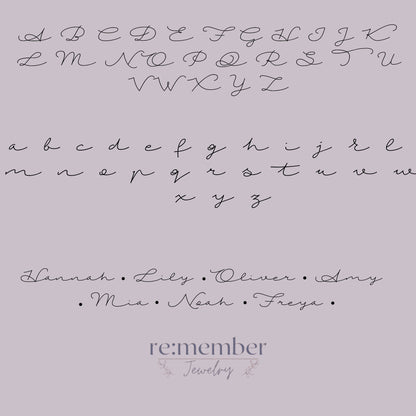 A B C D E F G H I J K
L M N O P Q R S T U
V W X Y Z
a b c d e f g h i j k l
m n o p q r s t u v w
x y z
Hannah • Lily • Oliver • Amy
• Mia • Noah • Freya •
re:member
Jewelry